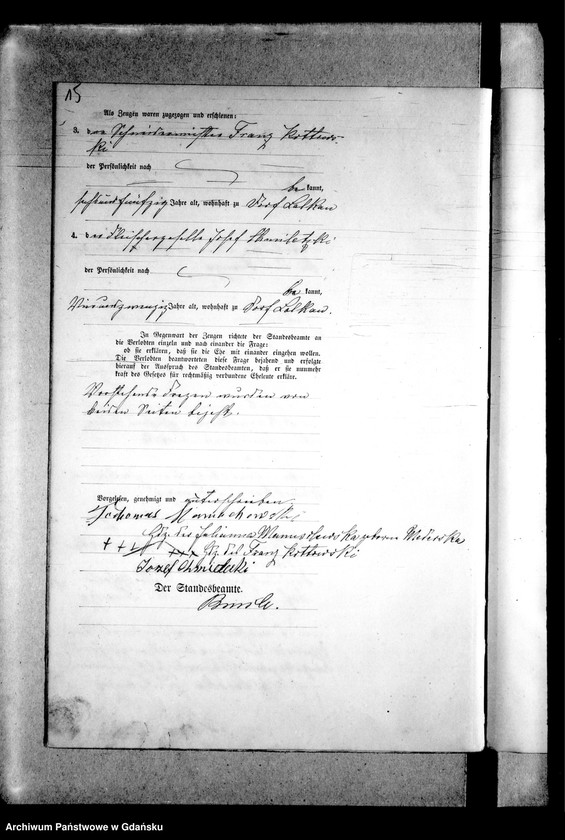 15
Als Zeugen waren zugezogen und erschienen:
3. der Schneidermeister Franz Kottows-
ki
der Persönlichkeit nach
be kannt,
sechsundfünfzig Jahre alt, wohnhaft zu Dorf Lalkau
4. der Fleischergeselle Josef
der Persönlichkeit nach
be kannt,
Vierundzwanzig Jahre alt, wohnhaft zu Dorf Lalkau.
In Gegenwart der Zeugen richtete der Standesbeamte an
die Verlobten einzeln und nach einander die Frage:
ob sie erklären, daß sie die Ehe mit einander eingehen wollen.
Die Verlobten beantworteten diese Frage bejahend und erfolgte
hierauf der Ausspruch des Standesbeamten, daß er sie nunmehr
kraft des Gesetzes für rechtmäßig verbundene Eheleute erkläre.
Vorstehende Fragen wurden von
beiden Seiten bejaht.
Vorgelesen, genehmigt und unterschrieben
Hdz. der Julianna geborne
+++ +++ Hdz. des Franz Kottowski
Jozef Chmielecki
Der Standesbeamte.
Archiwum Państwowe w Gdańsku